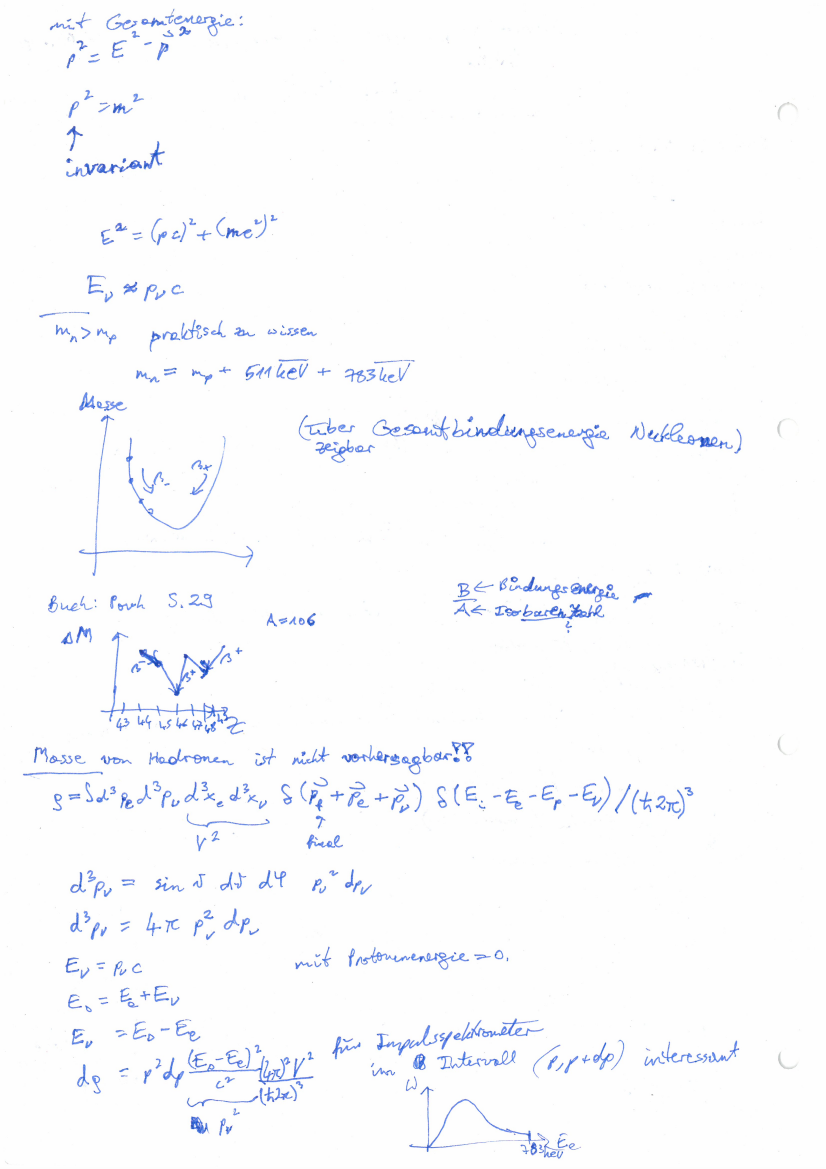 mit Gesamtenergie:
p² = E² - p⃗²
p² = m²
↑
invariant
E² = (pc)² + (mc²)²
E_ν ≈ p_ν c
m_n > m_p praktisch zu wissen
m_n = m_p + 511 keV + 783 keV
Masse
(Über Gesamtbindungsenergie Nukleonen)
zeigbar
β- β+
Buch: Povh S. 29
B ← Bindungsenergie
A ← Isobarenzahl
?
A=106
ΔM
β- β+ β+
43 44 45 46 47 48 Z
Masse von Hadronen ist nicht vorhersagbar!!
ρ = ∫ d³p_e d³p_ν d³x_e d³x_ν δ(p⃗_f + p⃗_e + p⃗_ν) δ(E_i - E_e - E_p - E_ν) / (ħ2π)³
V² ↑
final
d³p_ν = sin ϑ dϑ dφ p_ν² dp_ν
d³p_ν = 4π p_ν² dp_ν
E_ν = p_ν c mit Protonenenergie = 0.
E_0 = E_e + E_ν
E_ν = E_0 - E_e
für Impulsspektrometer
dρ = p² dp (E_0 - E_e)²/c² (4π)² V²/(ħ2π)³
im Intervall (p, p+dp) interessant
p_ν²
ω
E_e
783 keV